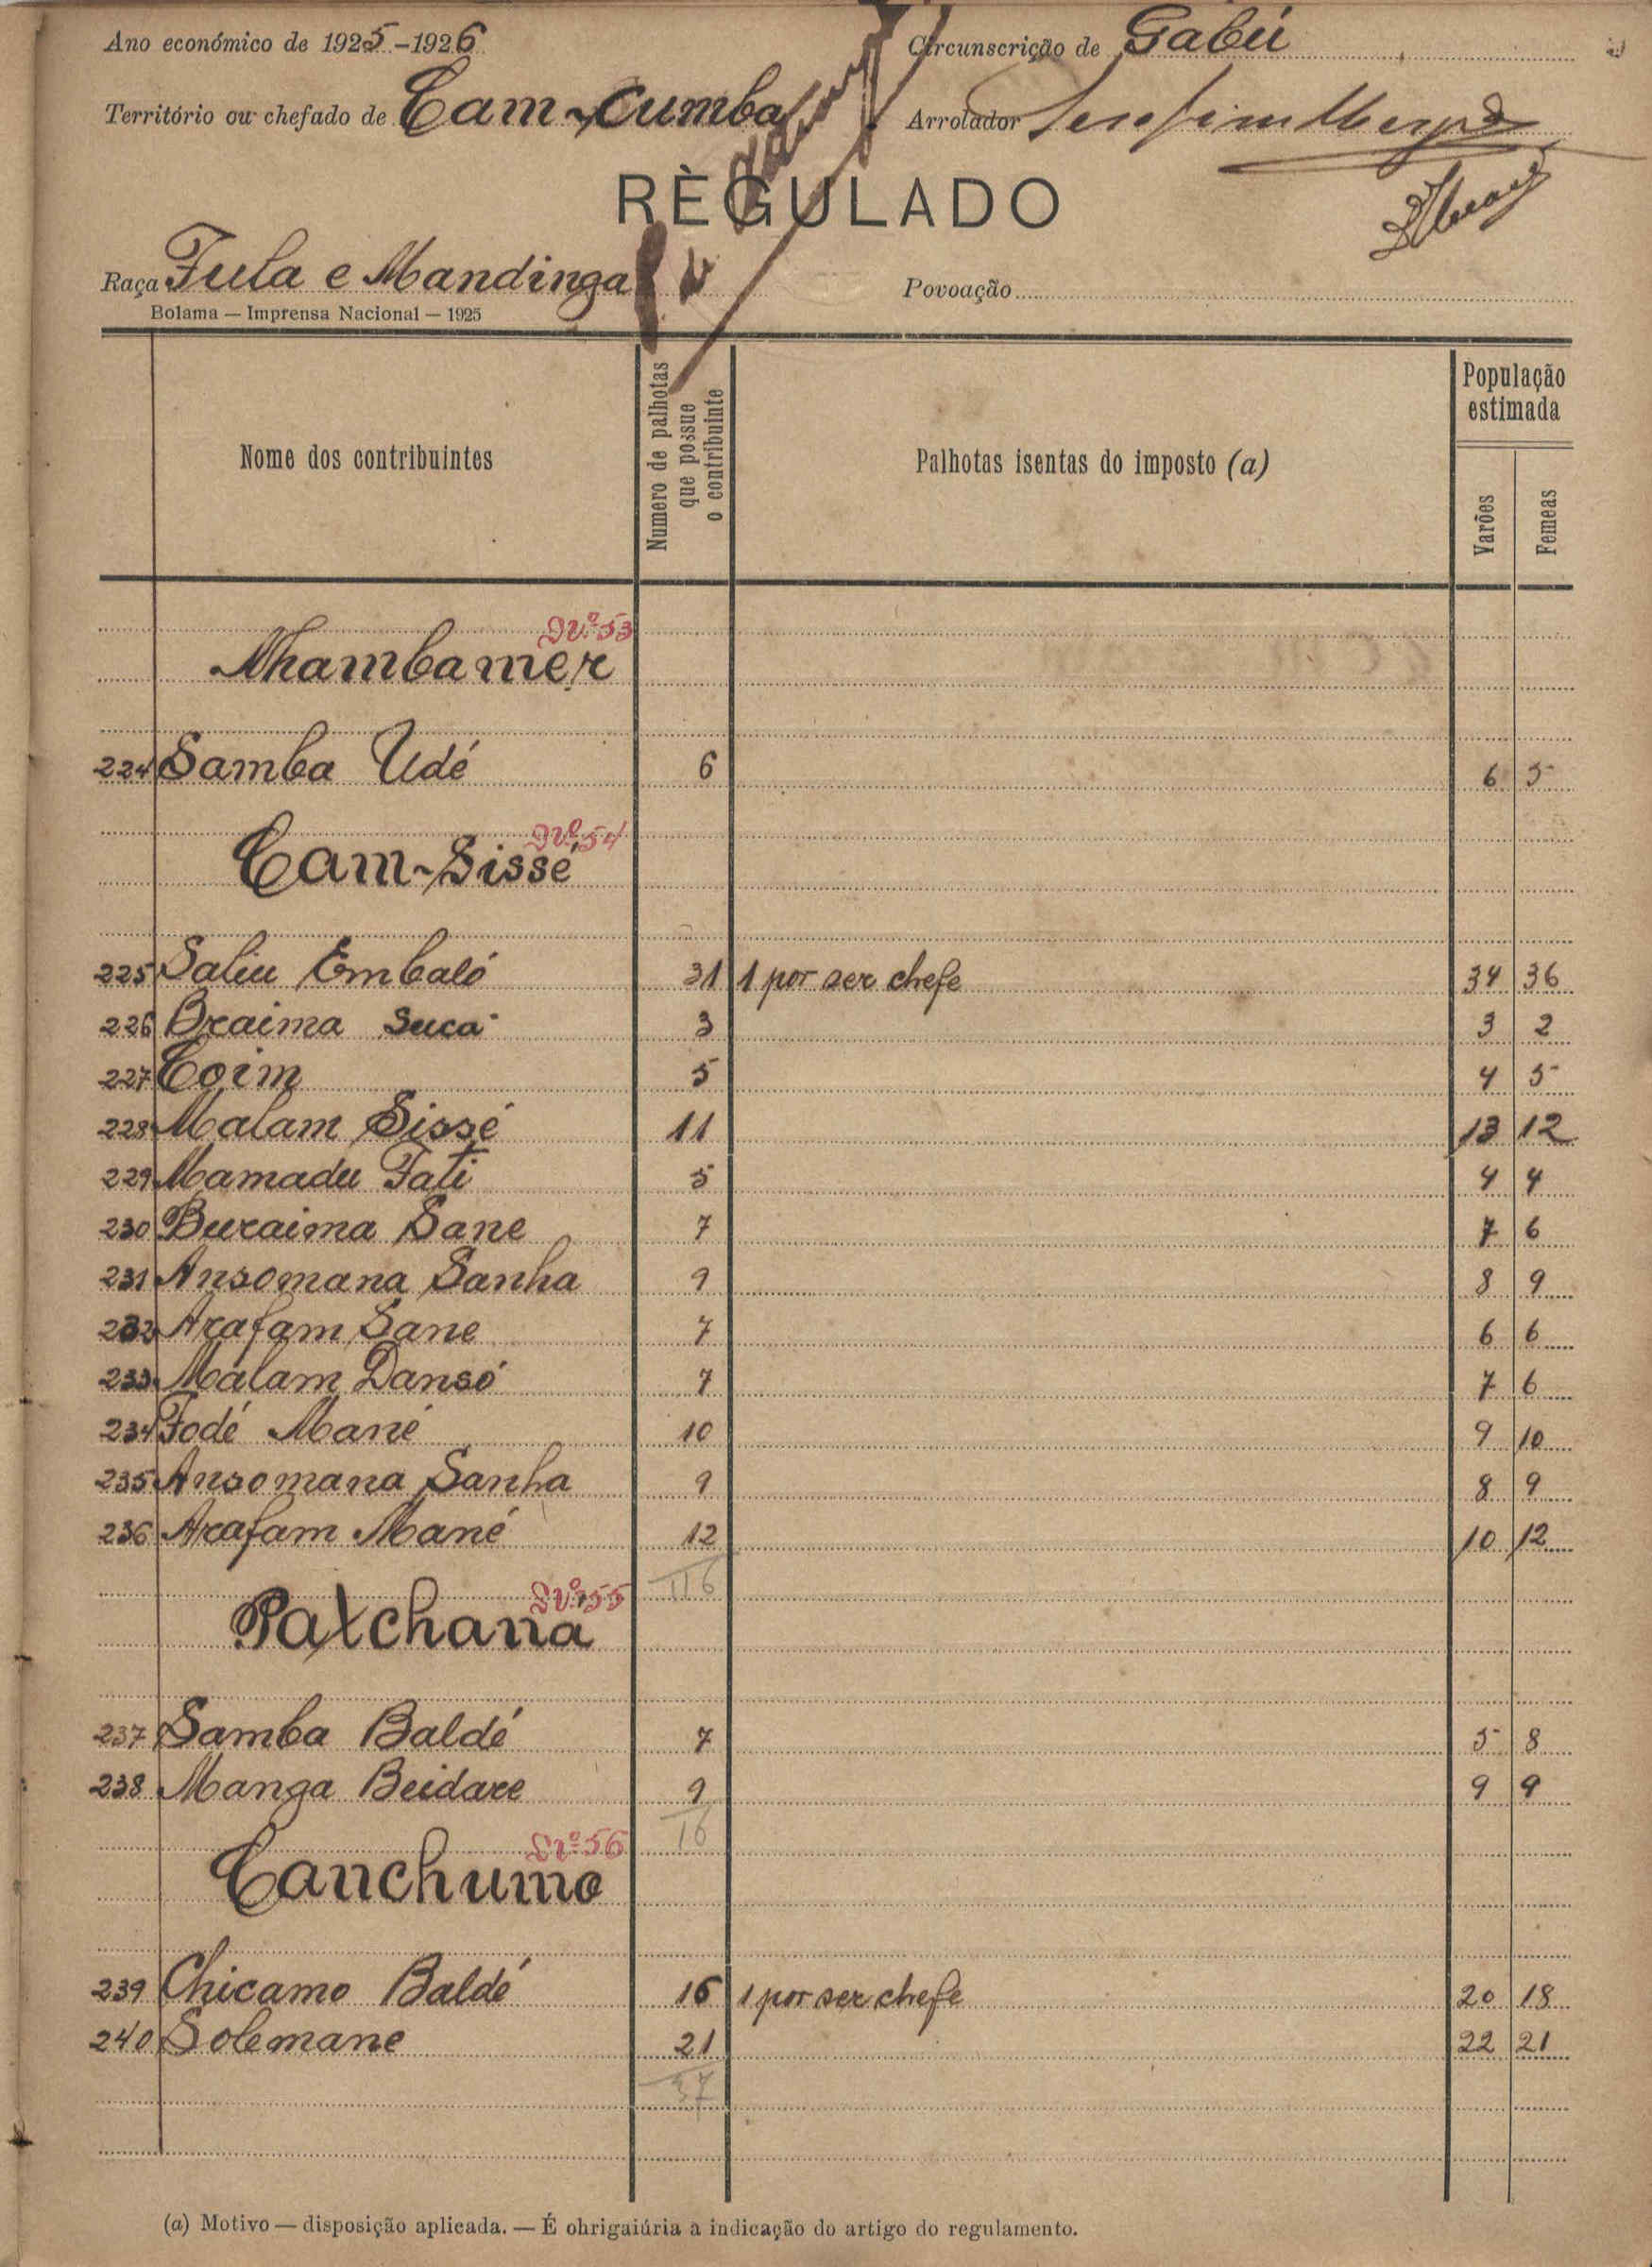 Ano económico de 1925-1926
Circunscrição de Gabú
Território ou chefado de Cam-Cumba
Arrolador Serafim
RÈGULADO
Raça Fula e Mandinga
Povoação
Bolama — Imprensa Nacional — 1925
Nome dos contribuintes
Numero de palhotas que possue o contribuinte
Palhotas isentas do imposto (a)
População estimada
Varões
Femeas
Nº 53
Nhambamer
224 Samba Udé 6 6 5
Nº 54
Cam-Sissé
225 Saliu Embaló 31 1 por ser chefe 34 36
226 Braima Suca 3 3 2
227 Coim 5 4 5
228 Malam Sissé 11 13 12
229 Mamadu Fati 5 4 4
230 Buraima Sane 7 7 6
231 Ansomana Sanha 9 8 9
232 Arafam Sane 7 6 6
233 Malam Dansó 7 7 6
234 Fodé Mané 10 9 10
235 Ansomana Sanha 9 8 9
236 Arafam Mané 12 10 12
116
Nº 55
Patchana
237 Samba Baldé 7 5 8
238 Manga Beidare 9 9 9
16
Nº 56
Canchumo
239 Chicamo Baldé 16 1 por ser chefe 20 18
240 Solemane 21 22 21
37
(a) Motivo — disposição aplicada. — É ohrigaiúria a indicação do artigo do regulamento.